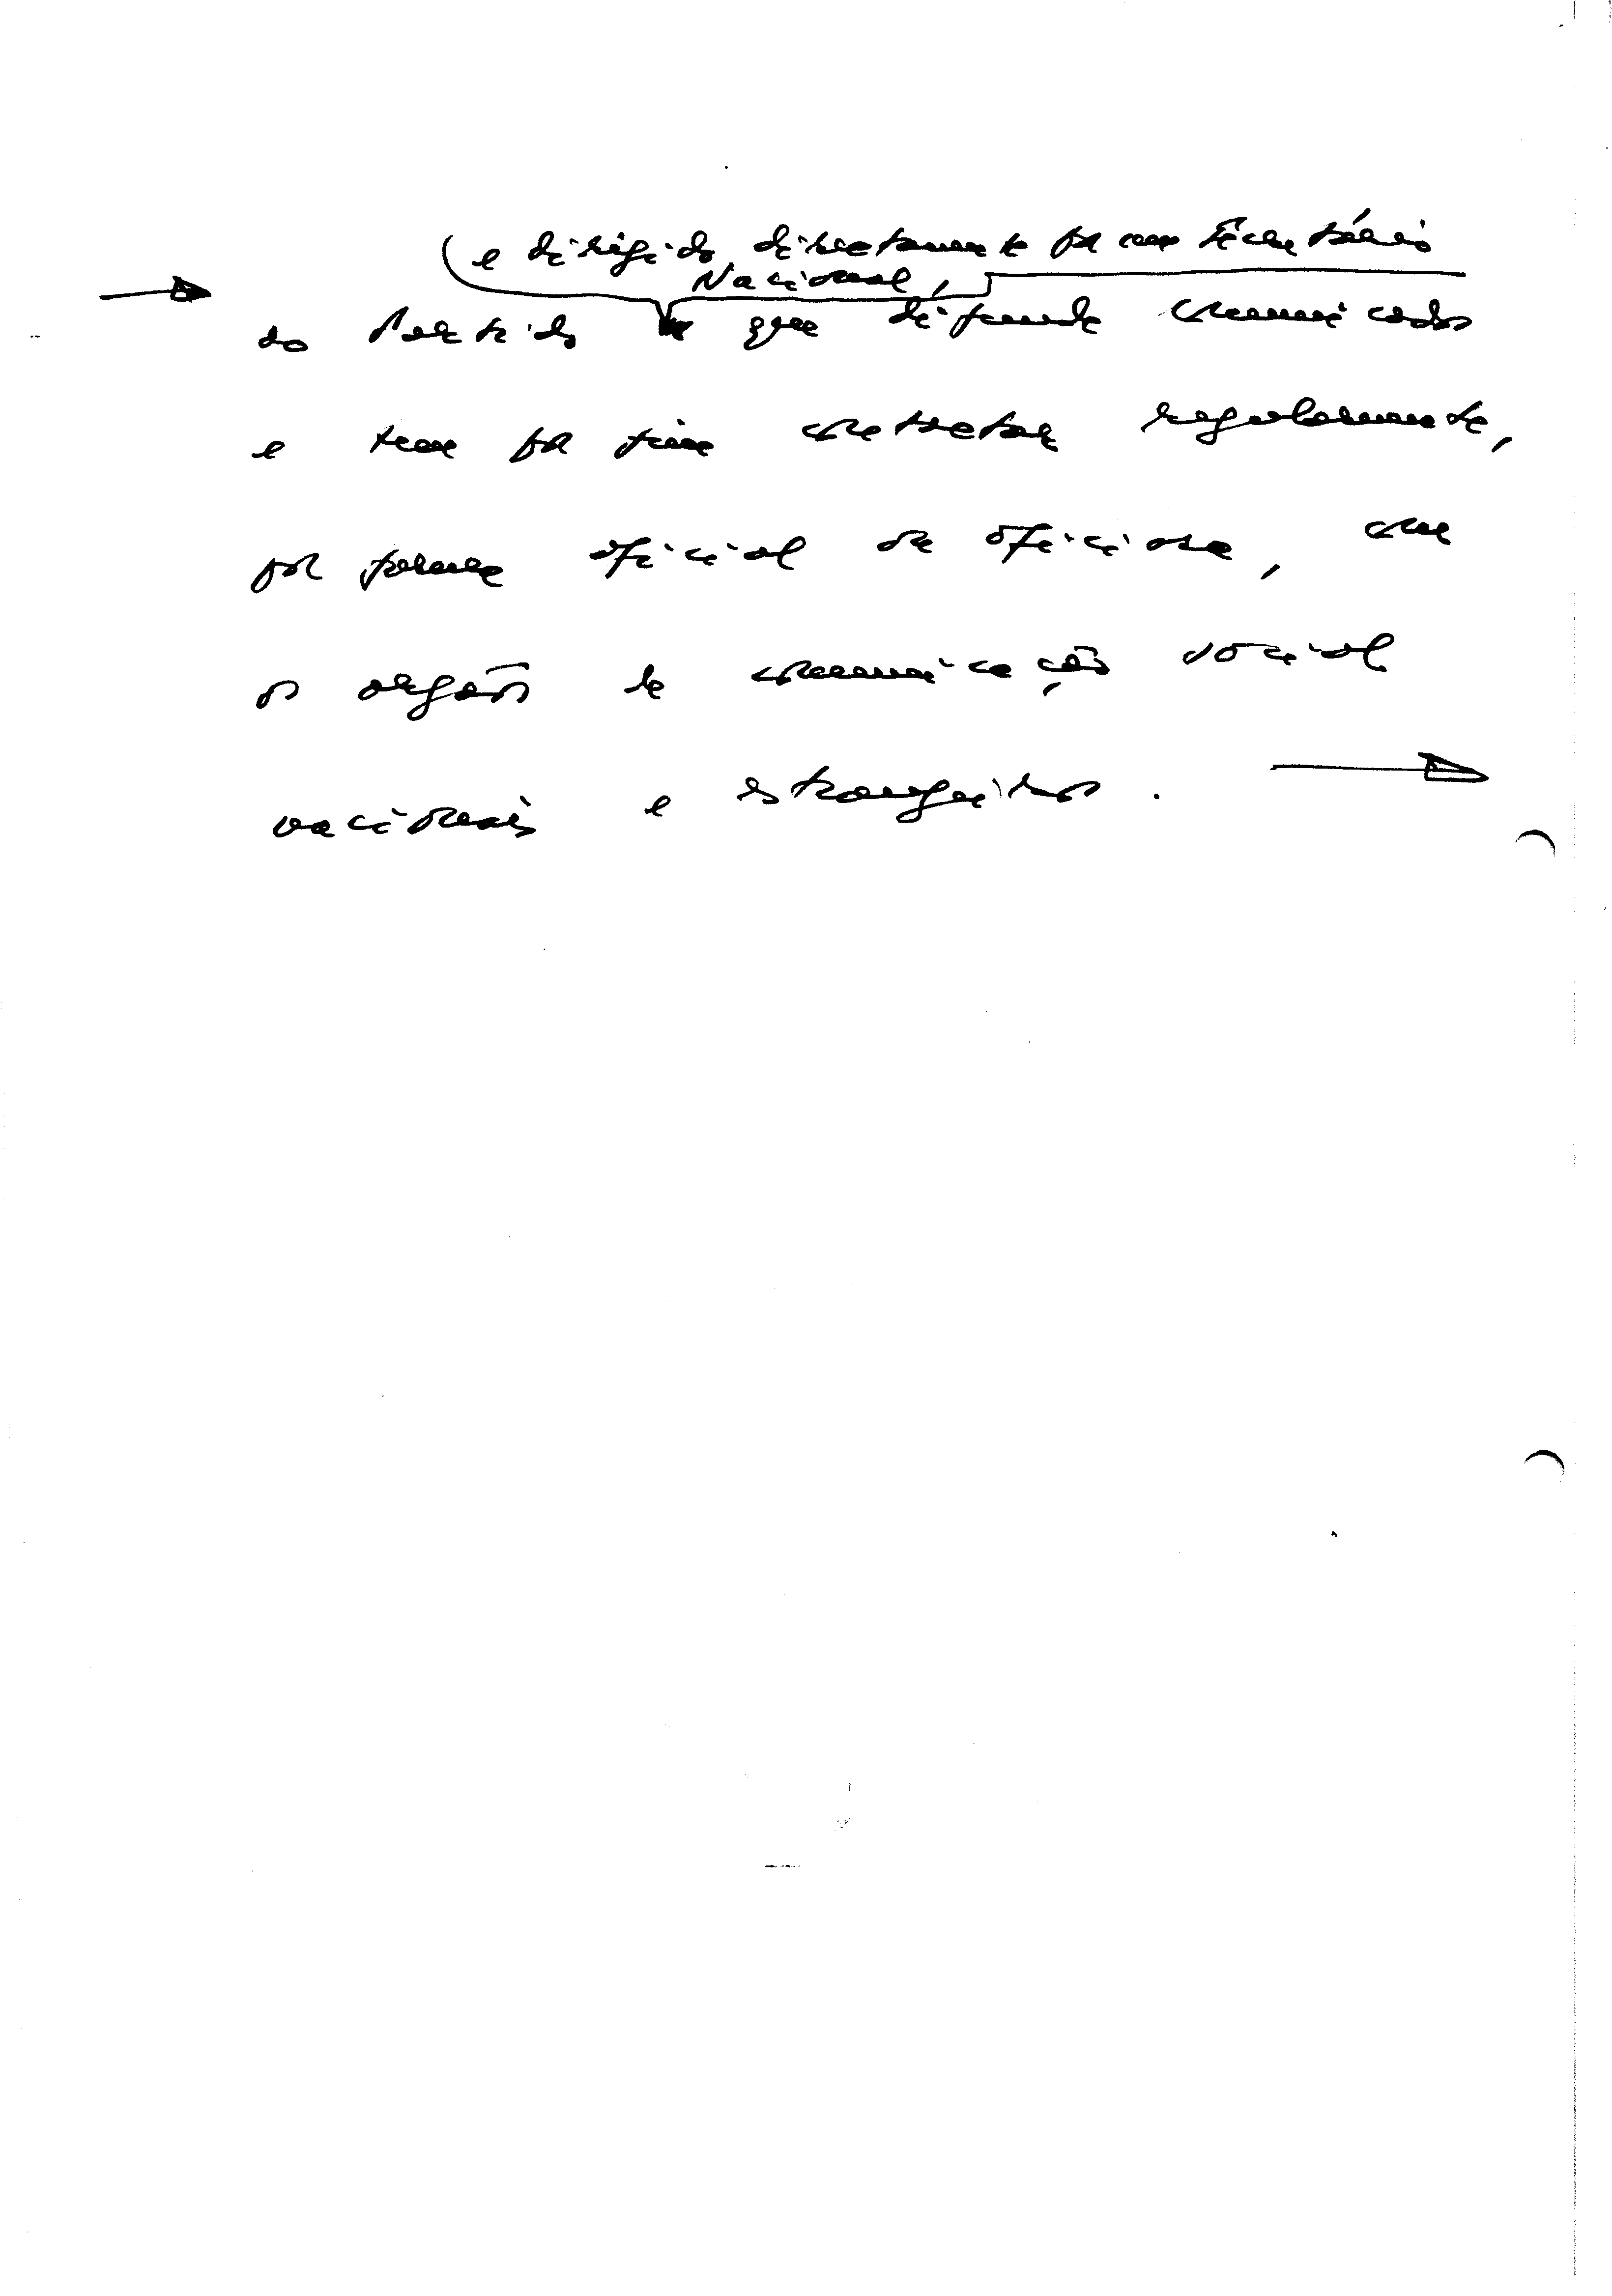 e dirigido directamente por um Secretário
Nacional,
do Partido que difunde comunicados
e tem por fim contactar regularmente,
por forma oficial ou oficiosa, com
os orgãos de comunicação social
nacionais e estrangeiros.